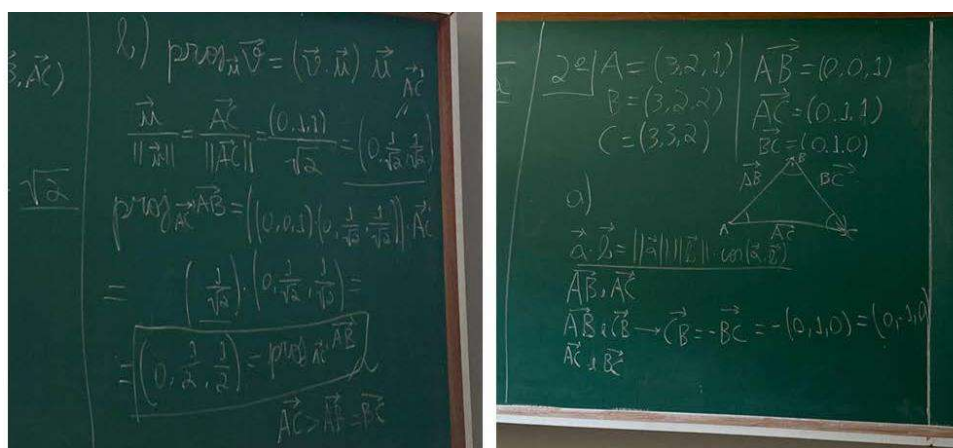 B,AC)
√2
b) proj_u⃗ v⃗ = (v⃗ . u⃗) u⃗
AC⃗
u⃗/||u⃗|| = AC⃗/||AC⃗|| = (0,1,1)/√2 = (0, 1/√2, 1/√2)
proj_AC⃗ AB⃗ = ((0,0,1)(0, 1/√2, 1/√2)) . AC⃗
= (1/√2) . (0, 1/√2, 1/√2) =
= (0, 1/2, 1/2) = proj_AC⃗ AB⃗
AC⃗ > AB⃗ = BC⃗
2º| A = (3,2,1)
B = (3,2,2)
C = (3,3,2)
AB⃗ = (0,0,1)
AC⃗ = (0,1,1)
BC⃗ = (0,1,0)
B
AB⃗ BC⃗
A AC⃗
a)
a⃗ . b⃗ = ||a⃗|| ||b⃗|| . cos(a⃗,b⃗)
AB⃗, AC⃗
AB⃗ e CB⃗ → CB⃗ = -BC⃗ = -(0,1,0) = (0,-1,0)
AC⃗ e BC⃗